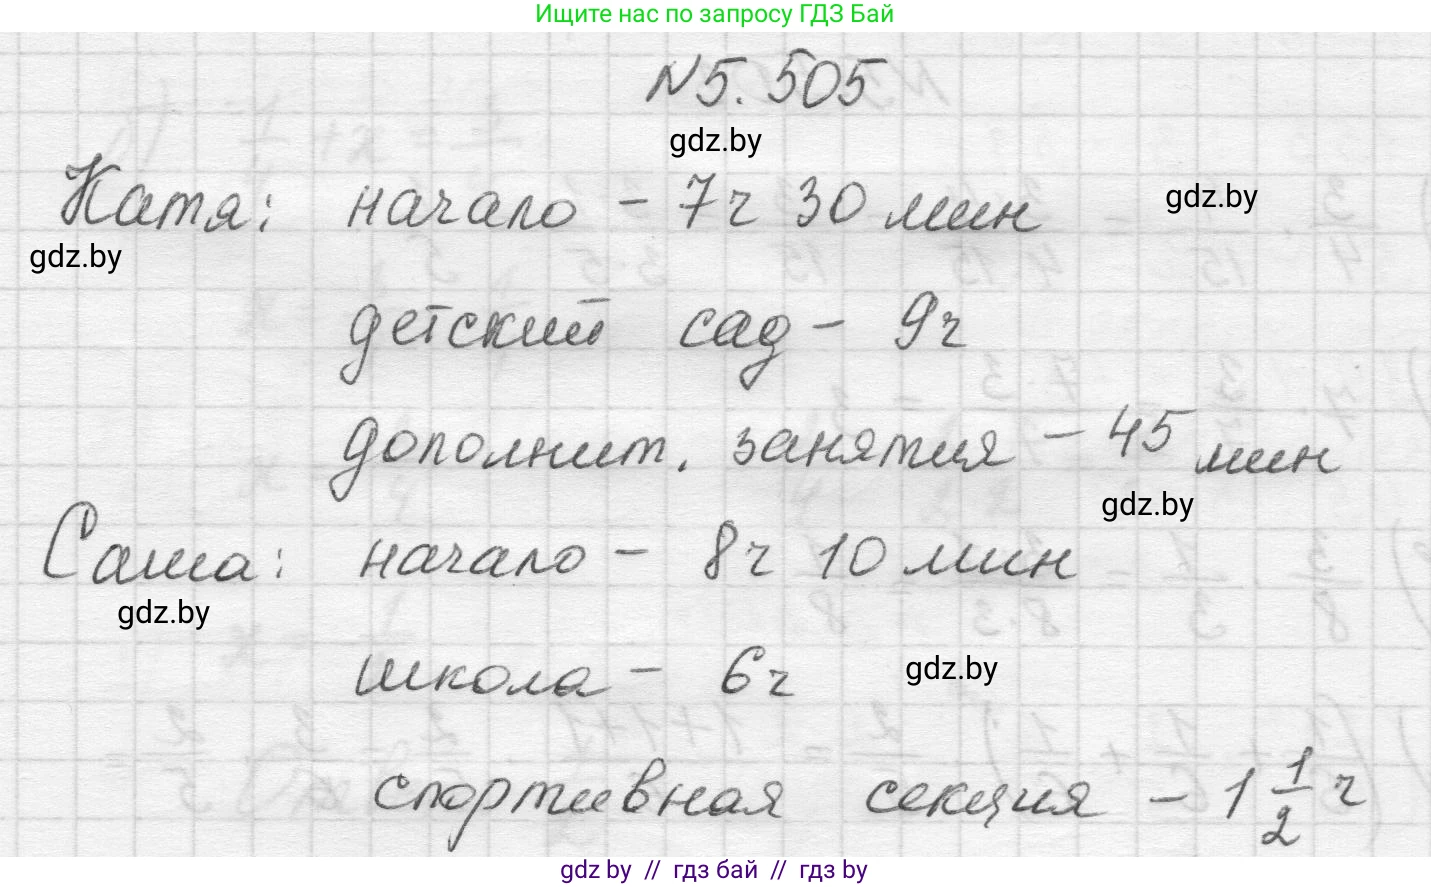 Ищите нас по запросу ГДЗ Бай
№5.505
gdz.by
Катя: начало - 7ч 30 мин
gdz.by
gdz.by
детский сад - 9ч
дополнит. занятия - 45 мин
gdz.by
Саша: начало - 8ч 10 мин
gdz.by
школа - 6ч
gdz.by
спортивная секция - 1 1/2 ч
gdz by // гдз бай // гдз by